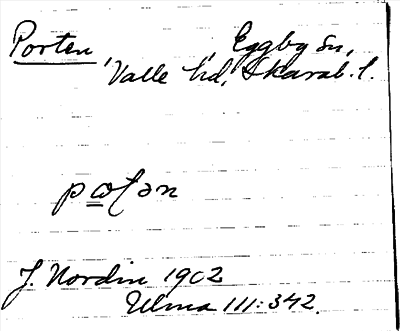 Porten, Eggby sn,
Valle hd, Skarab. l.
pɷʈən
J. Nordin 1902
Ulma 111:342.